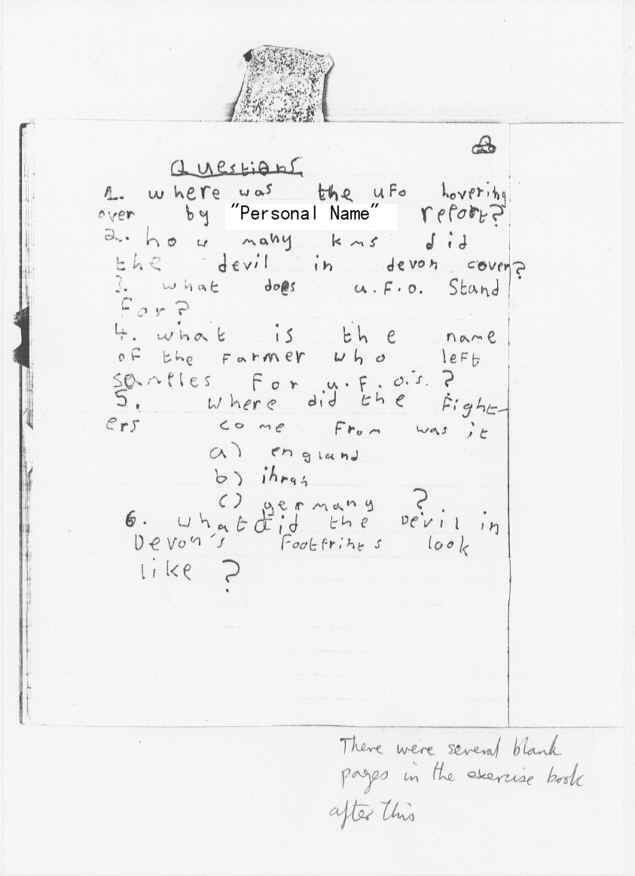 Questions
1. where was the UFO hovering
over by "Personal Name" report?
2. how many kms did
the devil in devon cover?
3. what does u.f.o. Stand
For?
4. what is the name
of the Farmer who left
For u.f.o.'s. ?
5. where did the Fight-
ers come From was it
a) england
b)
c) germany ?
6. what did the Devil in
Devon's Footprints look
like ?
There were several blank
pages in the exercise book
after this